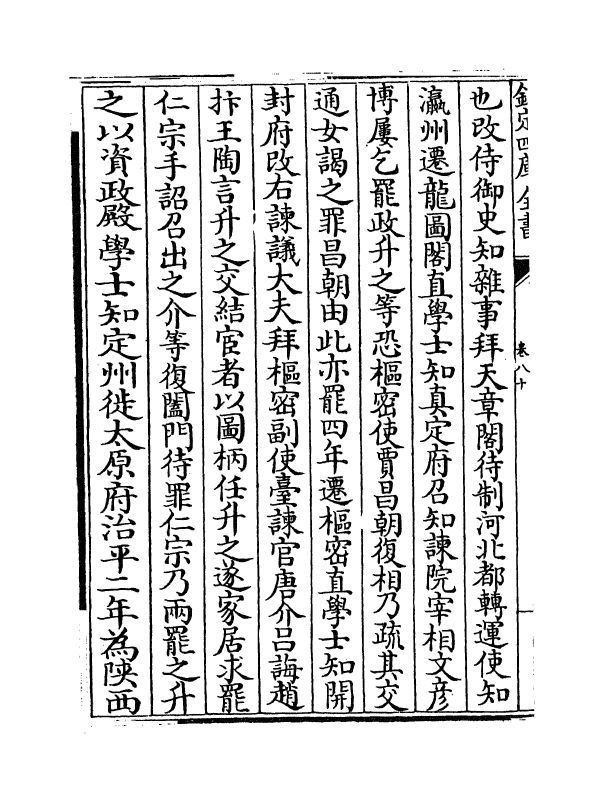 欽定四庫全書
卷八十
也改侍御史知雜事拜天章閣待制河北都轉運使知
瀛州遷龍圖閣直學士知真定府召知諫院宰相文彦
博屢乞罷政升之等恐樞密使賈昌朝復相乃疏其交
通女謁之罪昌朝由此亦罷四年遷樞密直學士知開
封府改右諫議大夫拜樞密副使臺諫官唐介吕誨趙
抃王陶言升之交結宦者以圖柄任升之遂家居求罷
仁宗手詔召出之介等復闔門待罪仁宗乃兩罷之升
之以資政殿學士知定州徙太原府治平二年為陜西